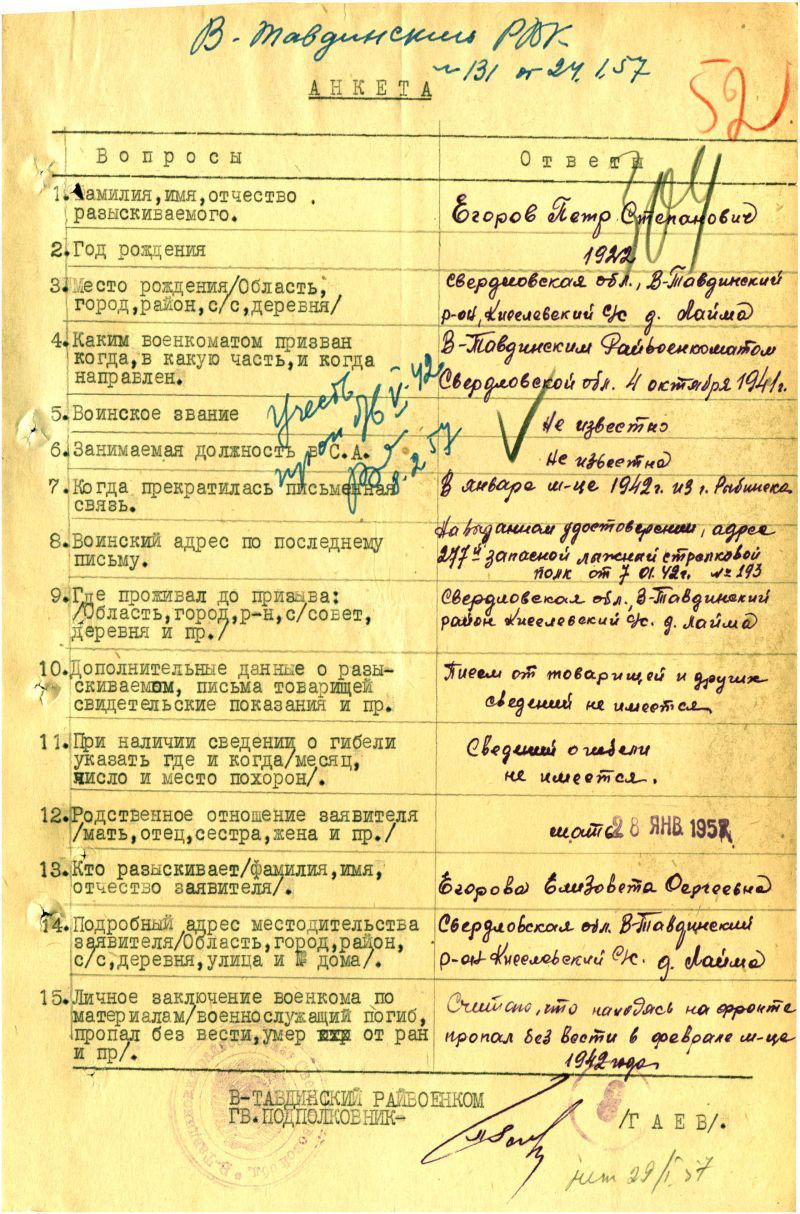 В-Тавдинский РВК
№131 от 24.1.57
АНКЕТА
52
Вопросы
Ответы
304
1. Фамилия,имя,отчество .
разыскиваемого.
Егоров Петр Степанович
2. Год рождения
1922
3. Место рождения/Область,
город,район,с/с,деревня/
Свердловская обл., В-Тавдинский
р-он, Киселевский с/с д. Лайма
4. Каким военкоматом призван
когда,в какую часть,и когда
направлен.
В-Тавдинским Райвоенкоматом
Свердловской обл. 4 октября 1941г.
5. Воинское звание
Не известно
6. Занимаемая должность в С.А.
Не известна
Учесть
V-42
8.2.57
7. Когда прекратилась письменная
связь.
В январе м-це 1942г. из г. Рыбинска
8. Воинский адрес по последнему
письму.
На выданном удостоверении, адрес
277й запасной лыжный стрелковой
полк от 7 01.42г. №193
9. Где проживал до призыва:
/Область,город,р-н,с/совет,
деревня и пр./
Свердловская обл., В-Тавдинский
район Киселевский с/с. д. Лайма
10. Дополнительные данные о разы-
скиваемом, письма товарищей
свидетельские показания и пр.
Писем от товарищей и других
сведений не имеется
11. При наличии сведении о гибели
указать где и когда/месяц,
число и место похорон/.
Сведений о гибели
не имеется.
12. Родственное отношение заявителя
/мать,отец,сестра,жена и пр./
мать
28 ЯНВ 1957
13. Кто разыскивает/фамилия,имя,
отчество заявителя/.
Егорова Елизовета Сергеевна
14. Подробный адрес местодительства
заявителя/Область,город,район,
с/с,деревня,улица и № дома/.
Свердловская обл. В-Тавдинский
р-он Киселевский с/с. д. Лайма
15. Личное заключение военкома по
материалам/военнослужащий погиб,
пропал без вести,умер от ран
и пр/.
Считаю, что находясь на фронте
пропал без вести в феврале м-це
1942 года
В-ТАВДИНСКИЙ РАЙВОЕНКОМ
ГВ.ПОДПОЛКОВНИК-
/ГАЕВ/.
29/I.57